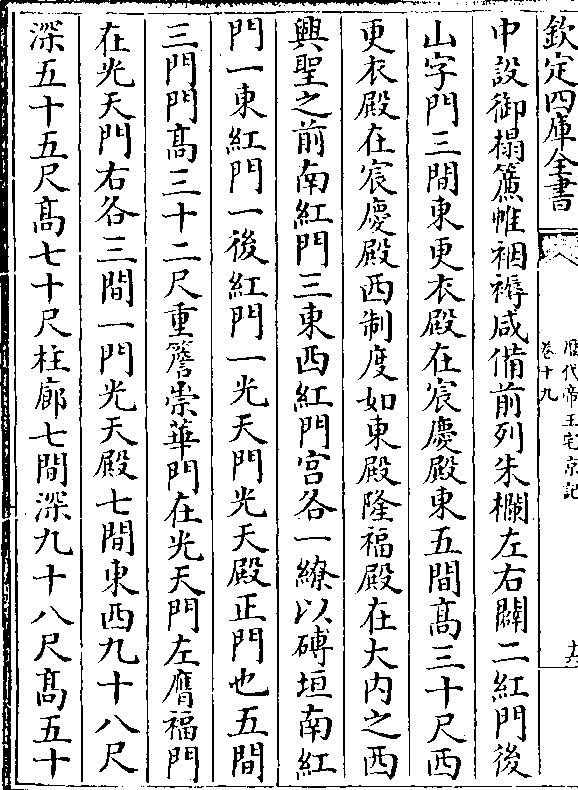 欽定四庫全書
歴代帝王宅京記
卷十九
十六
中設御榻簾帷裀褥咸備前列朱欄左右闢二紅門後
山字門三間東更衣殿在宸慶殿東五間髙三十尺西
更衣殿在宸慶殿西制度如東殿隆福殿在大内之西
興聖之前南紅門三東西紅門宫各一繚以磚垣南紅
門一東紅門一後紅門一光天門光天殿正門也五間
三門門髙三十二尺重簷崇華門在光天門左膺福門
在光天門右各三間一門光天殿七間東西九十八尺
深五十五尺髙七十尺柱廊七間深九十八尺髙五十